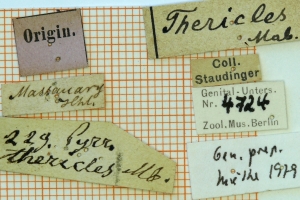 Origin.
Thericles
Mab.
Coll.
Staudinger
Massauary
Hhl.
Genital-Unters.
Nr. 4724
Zool. Mus. Berlin
229. Pyrr.
thericles Mb.
Gen. prep.
1979